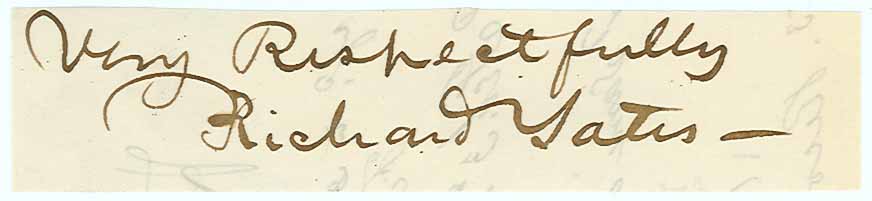 Very Respectfully
Richard Yates —